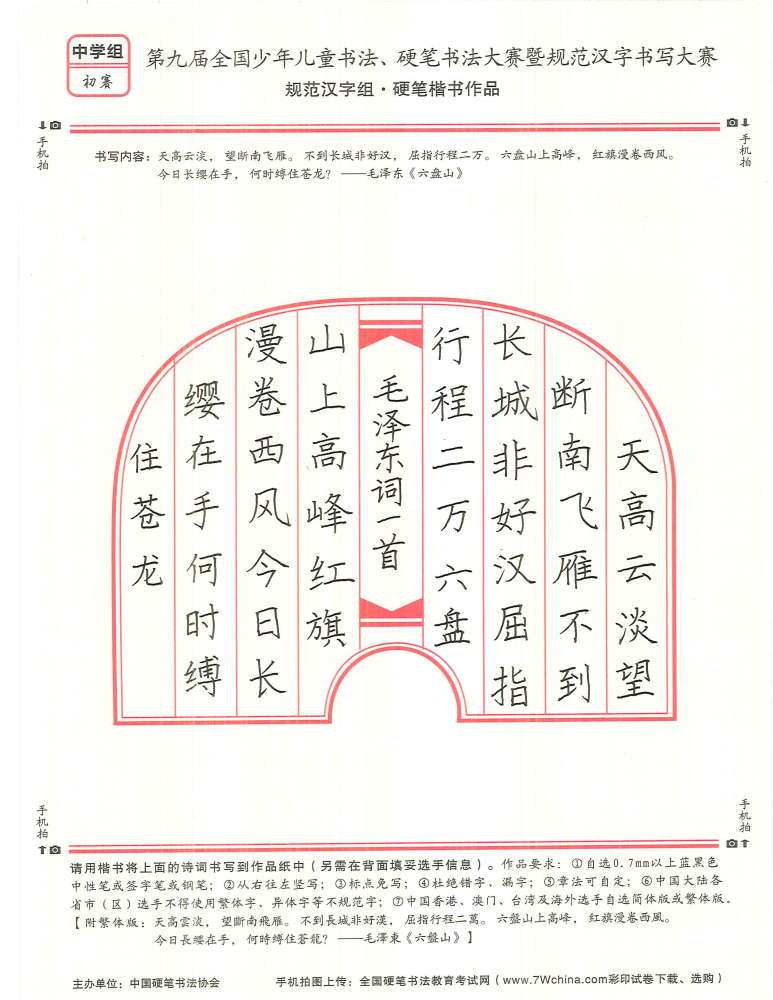 中学组
初赛
第九届全国少年儿童书法、硬笔书法大赛暨规范汉字书写大赛
规范汉字组·硬笔楷书作品
手机拍
手机拍
书写内容：天高云淡，望断南飞雁。不到长城非好汉，屈指行程二万。六盘山上高峰，红旗漫卷西风。
今日长缨在手，何时缚住苍龙？——毛泽东《六盘山》
天高云淡望
断南飞雁不到
长城非好汉屈指
行程二万六盘
毛泽东词一首
山上高峰红旗
漫卷西风今日长
缨在手何时缚
住苍龙
手机拍
手机拍
请用楷书将上面的诗词书写到作品纸中（另需在背面填妥选手信息）。作品要求：①自选0.7mm以上蓝黑色
中性笔或签字笔或钢笔；②从右往左竖写；③标点免写；④杜绝错字、漏字；⑤章法可自定；⑥中国大陆各
省市（区）选手不得使用繁体字、异体字等不规范字；⑦中国香港、澳门、台湾及海外选手自选简体版或繁体版。
【附繁体版：天高雲淡，望斷南飛雁。不到長城非好漢，屈指行程二萬。六盤山上高峰，紅旗漫卷西風。
今日長纓在手，何時縛住蒼龍？——毛澤東《六盤山》】
主办单位：中国硬笔书法协会
手机拍图上传：全国硬笔书法教育考试网（www.7Wchina.com彩印试卷下载、选购）